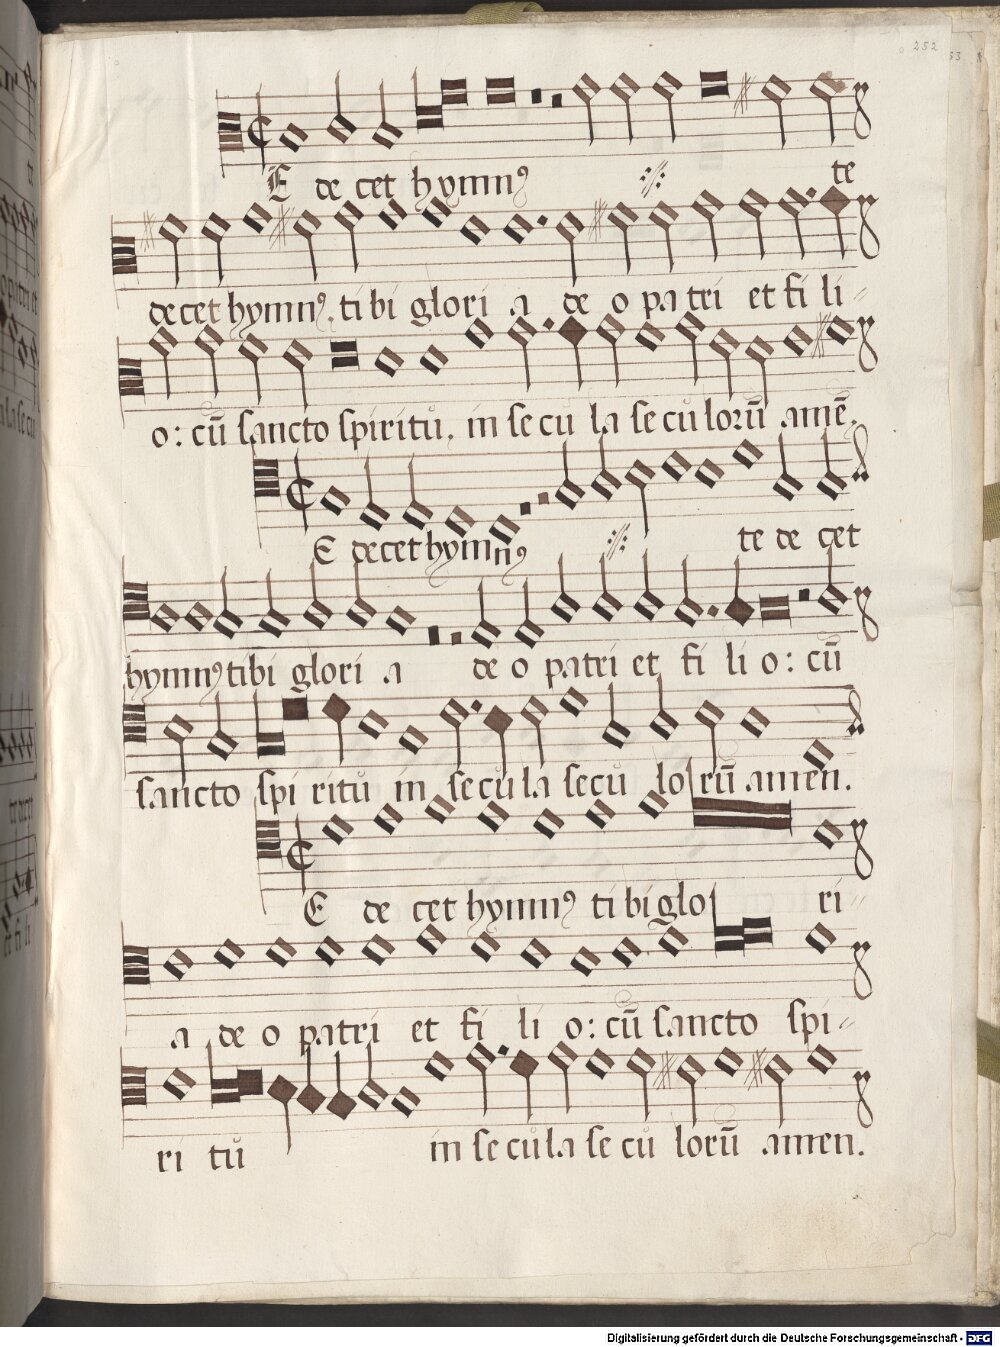 252
53
E de cet hymnꝰ te
decet hymnꝰ. ti bi glori a de o patri et fi li-
o: cū sancto spiritu, in secu la seculorū amē.
E decet hymnꝰ te de cet
hymnꝰ tibi glori a de o patri et fi li o: cū
sancto spi ritu in secula secu lo rū amen.
E de cet hymnꝰ ti bi glo ri-
a de o patri et fi li o: cū sancto spi-
ri tu in secula secu lorū amen.
Digitalisierung gefördert durch die Deutsche Forschungsgemeinschaft - DFG